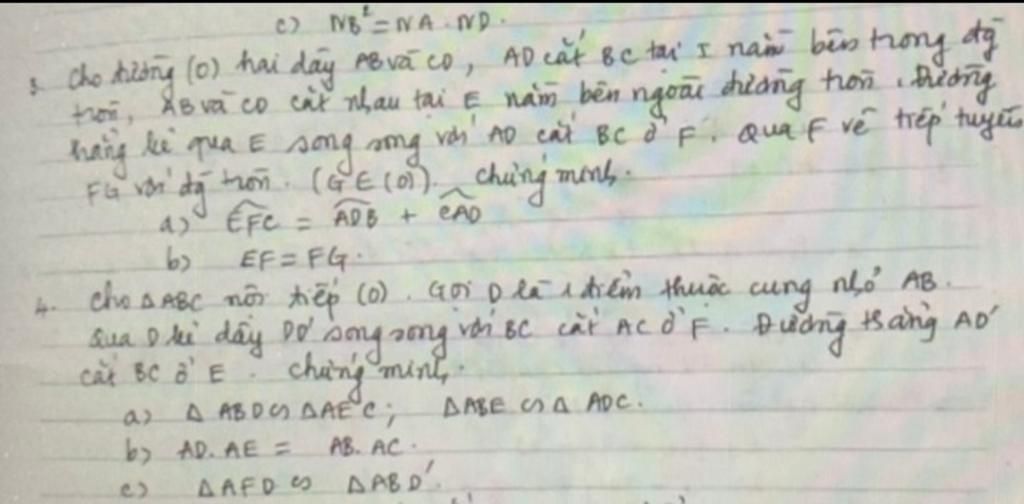 c) NB² = NA . ND.
3. Cho đường (O) hai dây AB và CD, AD cắt BC tại I nằm bên trong đg
tròn, AB và CD cắt nhau tại E nằm bên ngoài đường tròn. Đường
thẳng kẻ qua E song song với AD cắt BC ở F. Qua F vẽ tiếp tuyến
FG với đg tròn. (G ∈ (O)). Chứng minh.
a) EFC = ADB + CAD
b) EF = FG.
4. Cho Δ ABC nội tiếp (O). Gọi D là 1 điểm thuộc cung nhỏ AB.
Qua D kẻ dây DD' song song với BC cắt AC ở F. Đường thẳng AD'
cắt BC ở E. Chứng minh.
a) Δ ABD ∽ Δ AEC; Δ ABE ∽ Δ ADC.
b) AD. AE = AB. AC.
c) Δ AFD ∽ Δ ABD'.